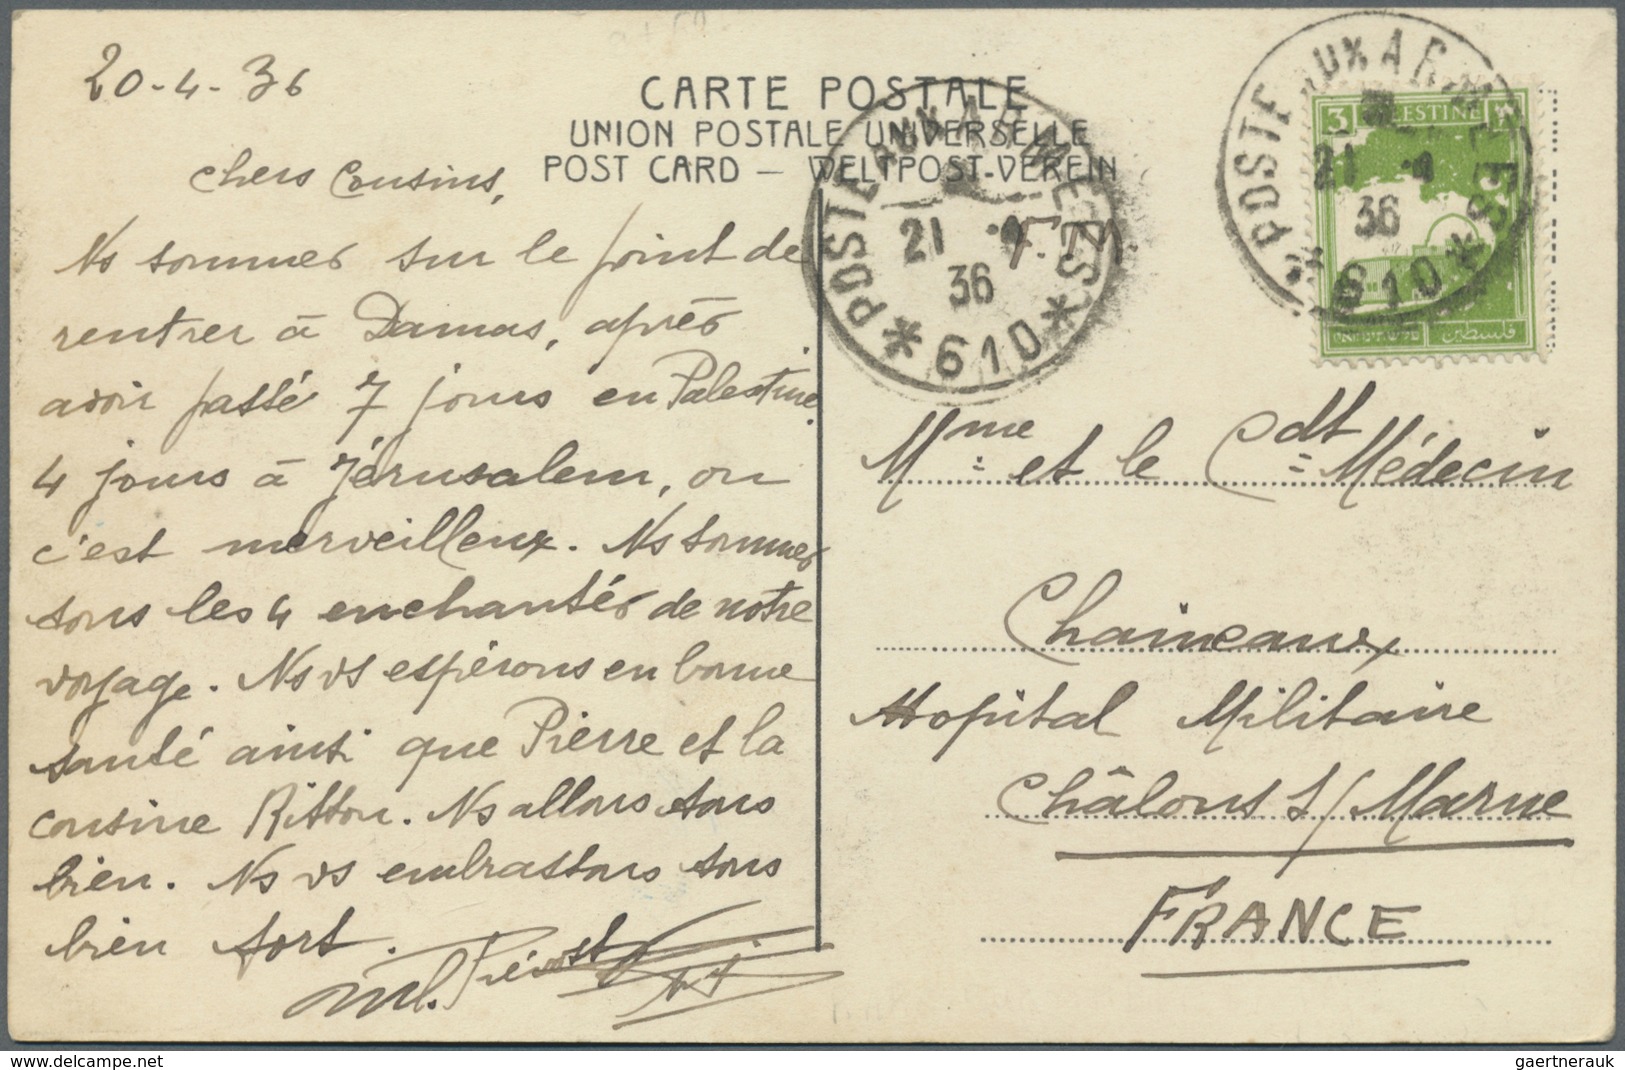 20-4-36
CARTE POSTALE
UNION POSTALE UNIVERSELLE
POST CARD — WELTPOST-VEREIN
chers Cousins,
Ns sommes sur le point de
rentrer à Damas, après
avoir passé 7 jours en Palestine,
4 jours à Jérusalem, ou
c'est merveilleux. Ns sommes
tous les 4 enchantés de notre
voyage. Ns vs espérons en bonne
santé ainsi que Pierre et la
cousine Ritton. Ns allons tous
bien. Ns vs embrassons tous
bien fort.
POSTE AUX ARMÉES
21 -4
36
* 610 *
F.M.
POSTE AUX ARMÉES
21 -4
36
* 610 *
3 PALESTINE
فلسطين
Mme et le Cdt Médecin
Chaineaux
Hopital Militaire
Châlons s/ Marne
FRANCE
www.delcampe.net
gaertnerauk